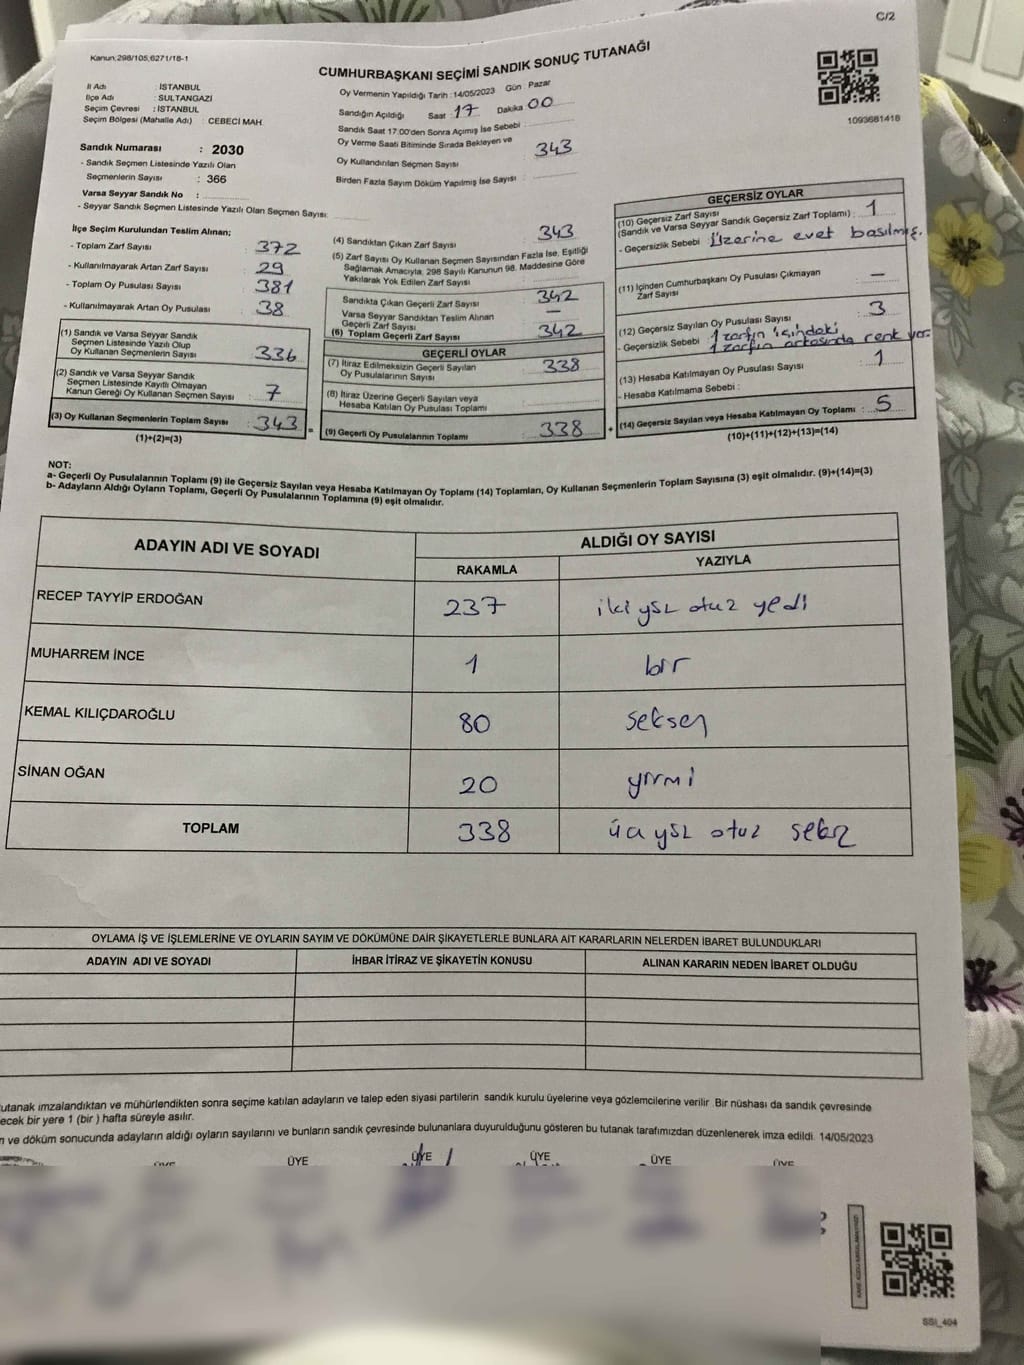 C/2
Kanun;298/105,6271/18-1
CUMHURBAŞKANI SEÇİMİ SANDIK SONUÇ TUTANAĞI
1093681418
İl Adı : İSTANBUL
İlçe Adı : SULTANGAZİ
Seçim Çevresi : İSTANBUL
Seçim Bölgesi (Mahalle Adı) : CEBECİ MAH.
Sandık Numarası : 2030
- Sandık Seçmen Listesinde Yazılı Olan
Seçmenlerin Sayısı : 366
Varsa Seyyar Sandık No :
- Seyyar Sandık Seçmen Listesinde Yazılı Olan Seçmen Sayısı:
Oy Vermenin Yapıldığı Tarih :14/05/2023 Gün : Pazar
Sandığın Açıldığı Saat : 17 Dakika 00
Sandık Saat 17:00'den Sonra Açımış İse Sebebi :
Oy Verme Saati Bitiminde Sırada Bekleyen ve
Oy Kullandırılan Seçmen Sayısı : 343
Birden Fazla Sayım Döküm Yapılmış İse Sayısı :
İlçe Seçim Kurulundan Teslim Alınan;
- Toplam Zarf Sayısı : 372
- Kullanılmayarak Artan Zarf Sayısı : 29
- Toplam Oy Pusulası Sayısı : 381
- Kullanılmayarak Artan Oy Pusulası : 38
(1) Sandık ve Varsa Seyyar Sandık
Seçmen Listesinde Yazılı Olup
Oy Kullanan Seçmenlerin Sayısı : 336
(2) Sandık ve Varsa Seyyar Sandık
Seçmen Listesinde Kayıtlı Olmayan
Kanun Gereği Oy Kullanan Seçmen Sayısı : 7
(3) Oy Kullanan Seçmenlerin Toplam Sayısı : 343
(1)+(2)=(3)
(4) Sandıktan Çıkan Zarf Sayısı : 343
(5) Zarf Sayısı Oy Kullanan Seçmen Sayısından Fazla İse, Eşitliği
Sağlamak Amacıyla, 298 Sayılı Kanunun 98. Maddesine Göre
Yakılarak Yok Edilen Zarf Sayısı :
Sandıkta Çıkan Geçerli Zarf Sayısı : 342
Varsa Seyyar Sandıktan Teslim Alınan
Geçerli Zarf Sayısı : —
(6) Toplam Geçerli Zarf Sayısı : 342
GEÇERLİ OYLAR
(7) İtiraz Edilmeksizin Geçerli Sayılan
Oy Pusulalarının Sayısı : 338
(8) İtiraz Üzerine Geçerli Sayılan veya
Hesaba Katılan Oy Pusulası Toplamı :
(9) Geçerli Oy Pusulalarının Toplamı : 338
GEÇERSİZ OYLAR
(10) Geçersiz Zarf Sayısı
(Sandık ve Varsa Seyyar Sandık Geçersiz Zarf Toplamı) : 1
- Geçersizlik Sebebi : Üzerine evet basılmış.
(11) İçinden Cumhurbaşkanı Oy Pusulası Çıkmayan
Zarf Sayısı : —
(12) Geçersiz Sayılan Oy Pusulası Sayısı : 3
- Geçersizlik Sebebi : 1 zarfın içindeki
1 zarfın arkasında renk var.
(13) Hesaba Katılmayan Oy Pusulası Sayısı : 1
- Hesaba Katılmama Sebebi :
(14) Geçersiz Sayılan veya Hesaba Katılmayan Oy Toplamı : 5
(10)+(11)+(12)+(13)=(14)
NOT:
a- Geçerli Oy Pusulalarının Toplamı (9) ile Geçersiz Sayılan veya Hesaba Katılmayan Oy Toplamı (14) Toplamları, Oy Kullanan Seçmenlerin Toplam Sayısına (3) eşit olmalıdır. (9)+(14)=(3)
b- Adayların Aldığı Oyların Toplamı, Geçerli Oy Pusulalarının Toplamına (9) eşit olmalıdır.
ADAYIN ADI VE SOYADI ALDIĞI OY SAYISI
RAKAMLA YAZIYLA
RECEP TAYYİP ERDOĞAN 237 iki yüz otuz yedi
MUHARREM İNCE 1 bir
KEMAL KILIÇDAROĞLU 80 seksen
SİNAN OĞAN 20 yirmi
TOPLAM 338 üç yüz otuz sekiz
OYLAMA İŞ VE İŞLEMLERİNE VE OYLARIN SAYIM VE DÖKÜMÜNE DAİR ŞİKAYETLERLE BUNLARA AİT KARARLARIN NELERDEN İBARET BULUNDUKLARI
ADAYIN ADI VE SOYADI İHBAR İTİRAZ VE ŞİKAYETİN KONUSU ALINAN KARARIN NEDEN İBARET OLDUĞU
utanak imzalandıktan ve mühürlendikten sonra seçime katılan adayların ve talep eden siyasi partilerin sandık kurulu üyelerine veya gözlemcilerine verilir. Bir nüshası da sandık çevresinde
ecek bir yere 1 (bir ) hafta süreyle asılır.
n ve döküm sonucunda adayların aldığı oyların sayılarını ve bunların sandık çevresinde bulunanlara duyurulduğunu gösteren bu tutanak tarafımızdan düzenlenerek imza edildi. 14/05/2023
ÜYE ÜYE ÜYE ÜYE ÜYE ÜYE
SSI_404